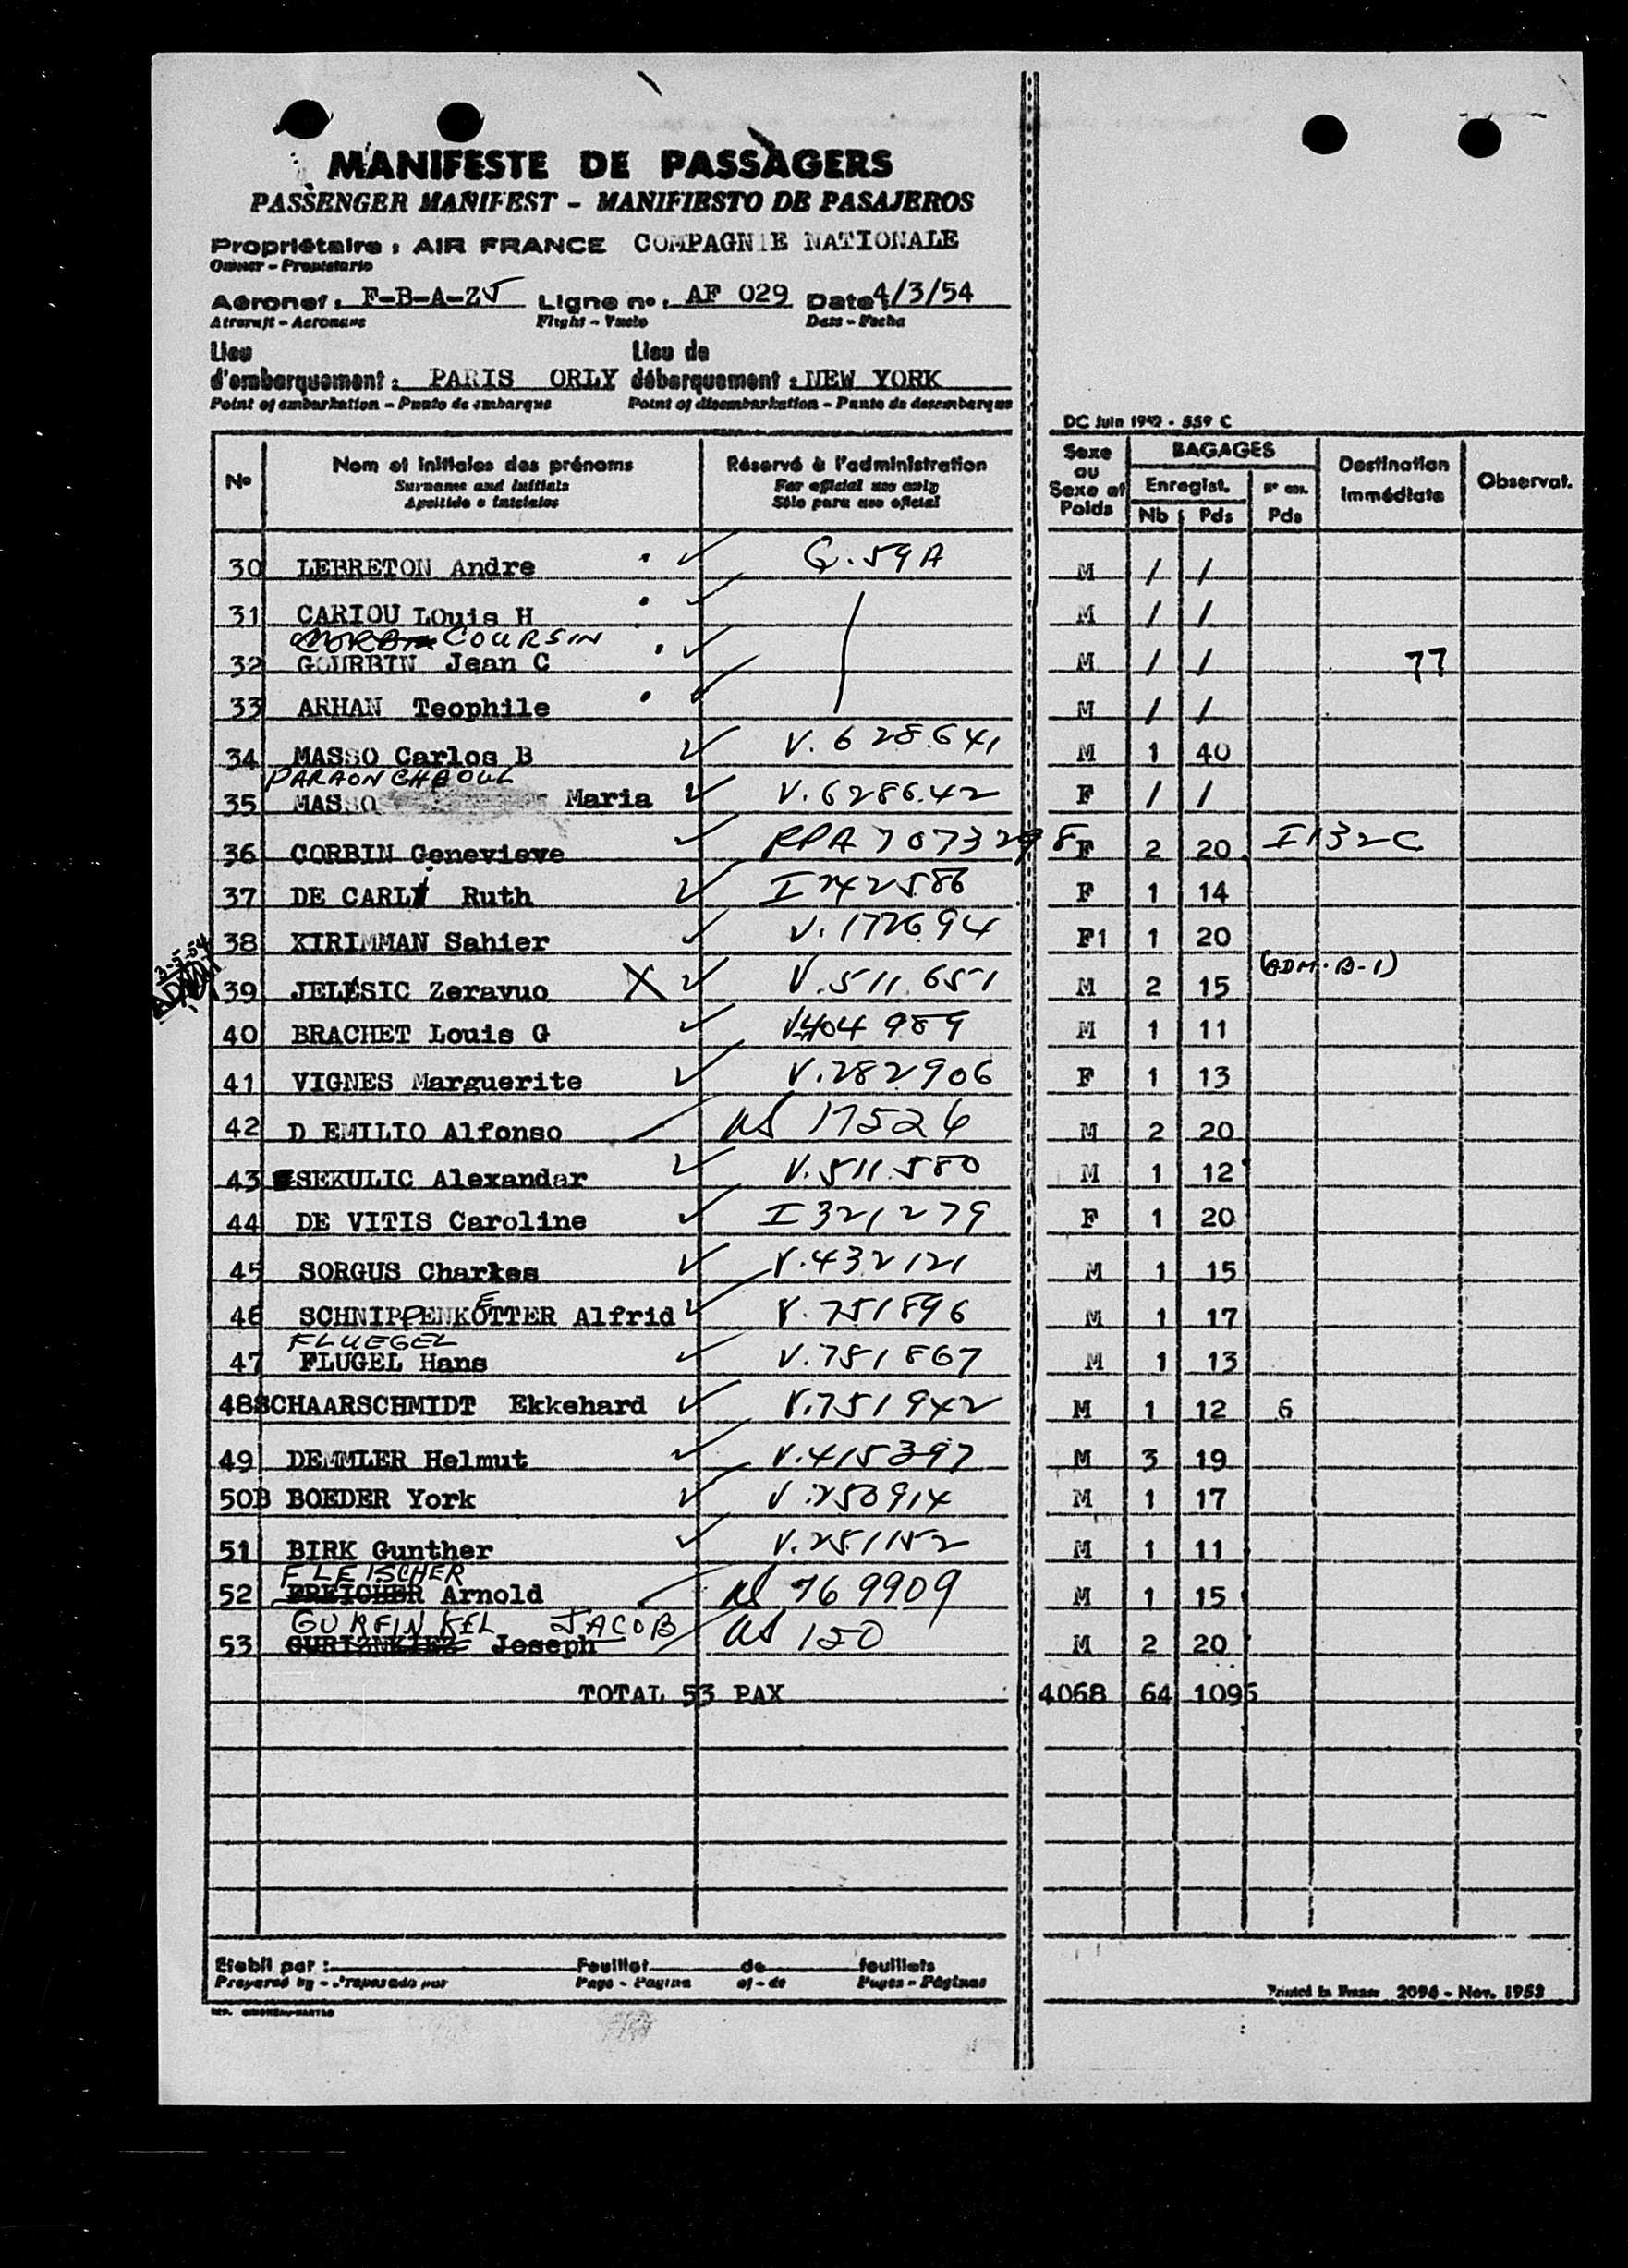 MANIFESTE DE PASSAGERS
PASSENGER MANIFEST - MANIFIESTO DE PASAJEROS
Propriétaire : AIR FRANCE COMPAGNIE NATIONALE
Owner - Propietario
Aéronef : F-B-A-ZV Ligne no : AF 029 Date 4/3/54
Aircraft - Aeronave Flight - Vuelo Date - Fecha
Lieu Lieu de
d'embarquement : PARIS ORLY débarquement : NEW YORK
Point of embarkation - Punto de embarque Point of disembarkation - Punto de desembarque
DC Juin 1942 - 559 C
No Nom et initiales des prénoms Réservé à l'administration Sexe ou Sexe et Poids BAGAGES Destination immédiate Observat.
Surname and initials For official use only Enregist. Pds
Apellido e iniciales Sólo para uso oficial Nb Pds
30 LEBRETON Andre G.59A M / /
31 CARIOU LOuis H M / /
COURSIN
32 GOURBIN Jean C M / / 77
33 ARHAN Teophile M / /
34 MASSO Carlos B V.628.641 M 1 40
PARAON CHAOUL
35 MASSO Maria V.6286.42 F / /
36 CORBIN Genevieve RPA 7073298 F 2 20 I132C
37 DE CARLi Ruth I 242586 F 1 14
38 KIRIMMAN Sahier V.1776.94 F1 1 20
3-5-54
(ADM. B-1)
39 JELESIC Zeravuo X V.511.651 M 2 15
40 BRACHET Louis G V404 989 M 1 11
41 VIGNES Marguerite V.282906 F 1 13
42 D EMILIO Alfonso US 17526 M 2 20
43 SEKULIC Alexandar V.511.580 M 1 12
44 DE VITIS Caroline I 321279 F 1 20
45 SORGUS Charkes V.432121 M 1 15
46 SCHNIPPENKOETTER Alfrid V.751896 M 1 17
FLUEGEL
47 FLUGEL Hans V.751867 M 1 13
48 SCHAARSCHMIDT Ekkehard V.751942 M 1 12 6
49 DEMMLER Helmut V.415397 M 3 19
50B BOEDER York V.250914 M 1 17
51 BIRK Gunther V.251152 M 1 11
FLEISCHER
52 FREICHER Arnold US 769909 M 1 15
GURFINKEL JACOB
53 Joseph US 150 M 2 20
TOTAL 53 PAX 4068 64 1095
Etabli par : Feuillet de feuillets
Prepared by - Preparado por Page - Pagina of - de Pages - Páginas
Printed in France 2096 - Nov. 1953